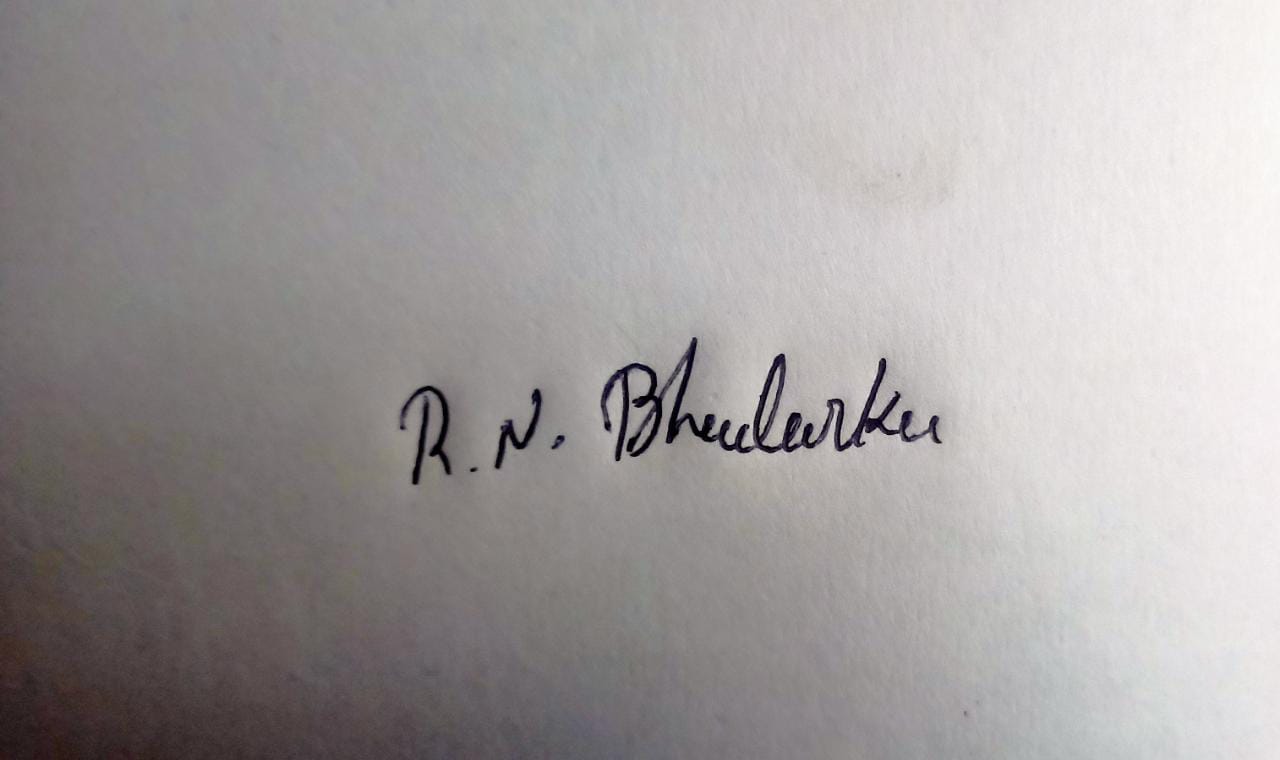 R. N. Bhularka